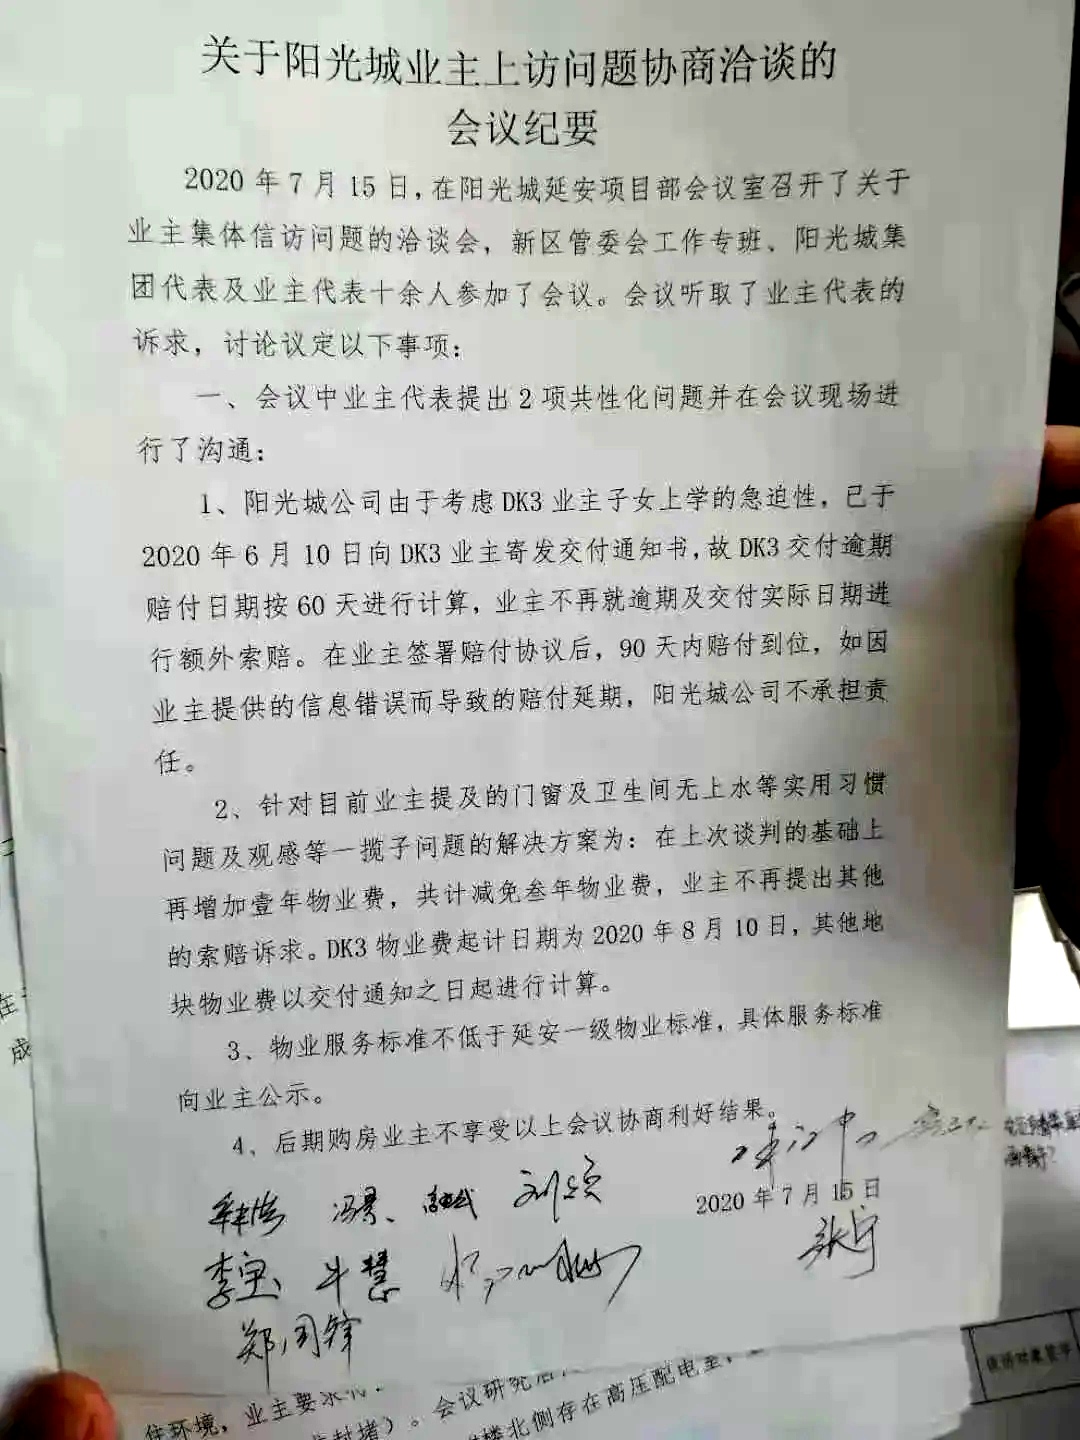 关于阳光城业主上访问题协商洽谈的
会议纪要
2020年7月15日,在阳光城延安项目部会议室召开了关于
业主集体信访问题的洽谈会，新区管委会工作专班、阳光城集
团代表及业主代表十余人参加了会议。会议听取了业主代表的
诉求，讨论议定以下事项：
一、会议中业主代表提出2项共性化问题并在会议现场进
行了沟通：
1、阳光城公司由于考虑DK3业主子女上学的急迫性，已于
2020年6月10日向DK3业主寄发交付通知书,故DK3交付逾期
赔付日期按60天进行计算，业主不再就逾期及交付实际日期进
行额外索赔。在业主签署赔付协议后，90天内赔付到位，如因
业主提供的信息错误而导致的赔付延期，阳光城公司不承担责
任。
2、针对目前业主提及的门窗及卫生间无上水等实用习惯
问题及观感等一揽子问题的解决方案为：在上次谈判的基础上
再增加壹年物业费，共计减免叁年物业费，业主不再提出其他
的索赔诉求。DK3物业费起计日期为2020年8月10日,其他地
块物业费以交付通知之日起进行计算。
3、物业服务标准不低于延安一级物业标准，具体服务标准
向业主公示。
4、后期购房业主不享受以上会议协商利好结果。
2020年7月15日
冯景、
李宝 牛慧
张宁
郑周锋
在
成
住环境，业主要求
封堵）。会议研究
楼北侧存在高压配电室，